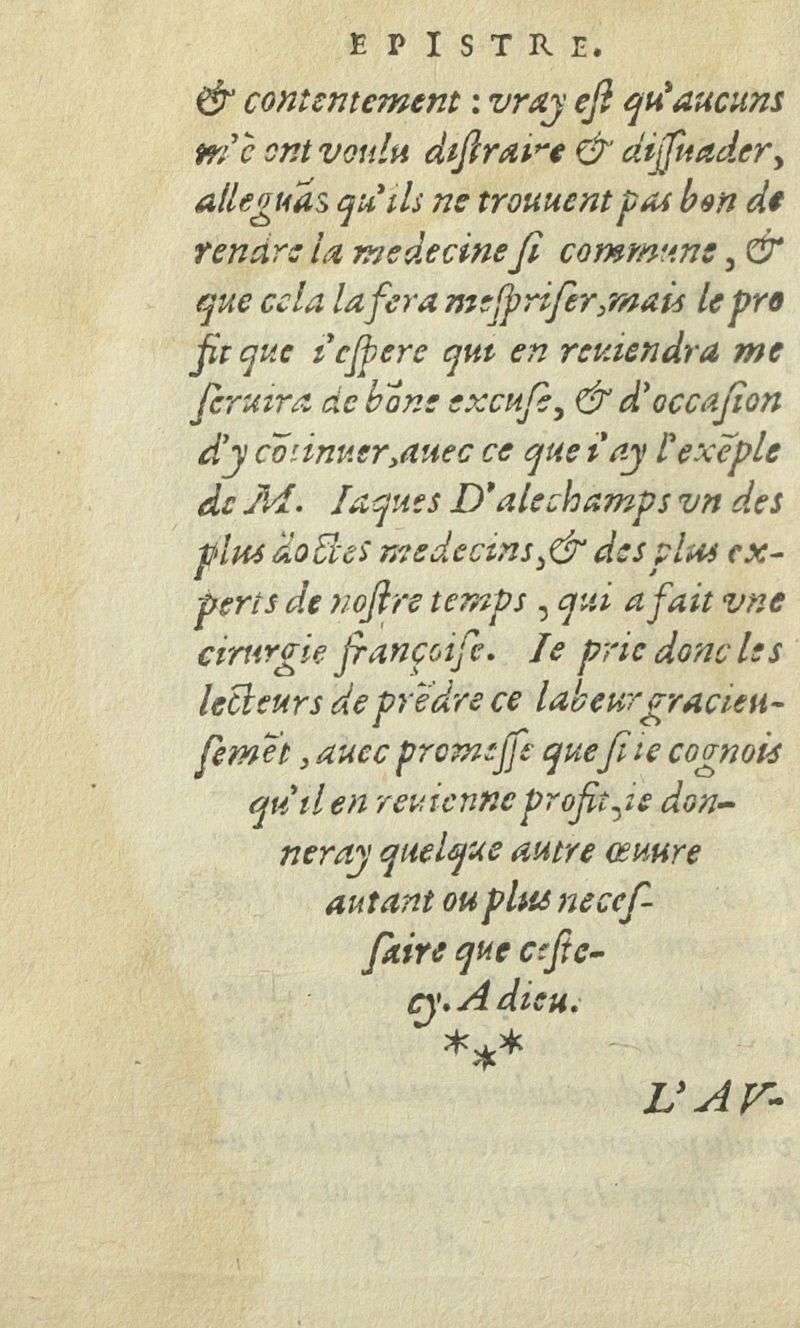 EPISTRE.
& contentement : vray eſt qu'aucuns
m'ẽ ont voulu diſtraire & diſſuader,
alleguãs qu'ils ne trouuent pas bon de
rendre la medecine ſi commune, &
que cela la fera meſpriſer, mais le pro
fit que i'eſpere qui en reuiendra me
ſeruira de bõne excuſe, & d'occaſion
d'y cõtinuer, auec ce que i'ay l'exẽple
de M. Iaques D'alechamps vn des
plus doctes medecins, & des plus ex-
perts de noſtre temps, qui a fait vne
cirurgie françoiſe. Ie prie donc les
lecteurs de prẽdre ce labeur gracieu-
ſemẽt, auec promeſſe que ſi ie cognois
qu'il en reuienne profit, ie don-
neray quelque autre œuure
autant ou plus neceſ-
ſaire que ceſte-
cy. A dieu.
***
L'AV-